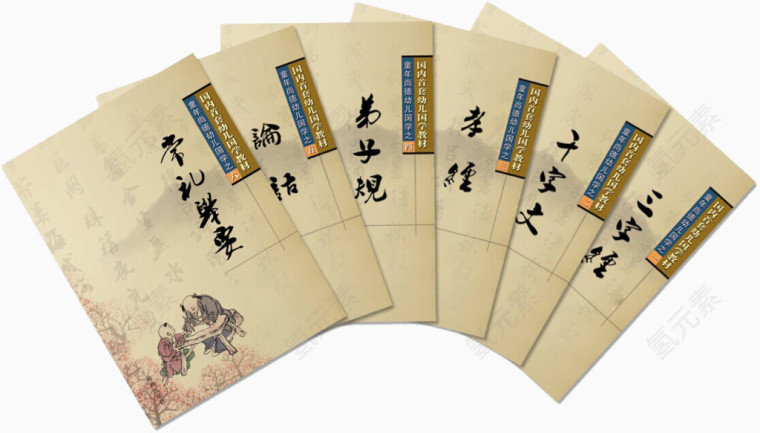 常礼举要
国内首套幼儿国学教材
童年尚德幼儿国学之六
論語
国内首套幼儿国学教材
童年尚德幼儿国学之五
弟子規
国内首套幼儿国学教材
童年尚德幼儿国学之四
孝經
国内首套幼儿国学教材
童年尚德幼儿国学之三
千字文
国内首套幼儿国学教材
童年尚德幼儿国学之二
三字經
国内首套幼儿国学教材
童年尚德幼儿国学之一
氢元素